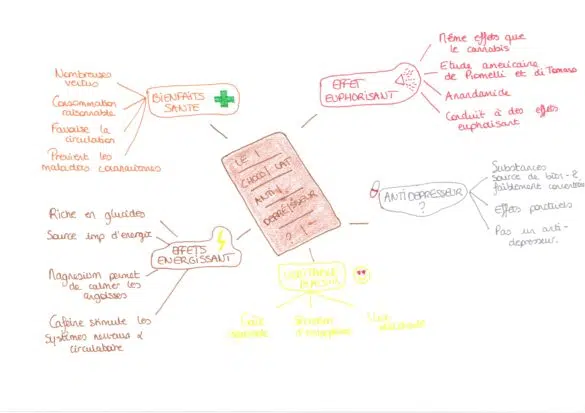 LE
CHOCOLAT
ANTI
DEPRESSEUR
?
BIENFAITS
SANTE
Nombreuses
vertus
Consommation
raisonnable
Favorise la
circulation
Previent les
maladies coronariennes
EFFET
EUPHORISANT
Même effets que
le cannabis
Etude américaine
de Piomelli et di Tomaso
Anandamide
Conduit à des effets
euphorisant
ANTIDEPRESSEUR
?
Substances
source de bien-ê
faiblement concentrées
Effets ponctuels
Pas un anti-
depresseur.
EFFETS
ENERGISSANT
Riche en glucides
Source imp d'energie
Magnesium permet
de calmer les
angoisses
Caféine stimule les
systèmes nerveux &
circulatoire
PLAISIR
Goût
Sécrétion
d'endorphines